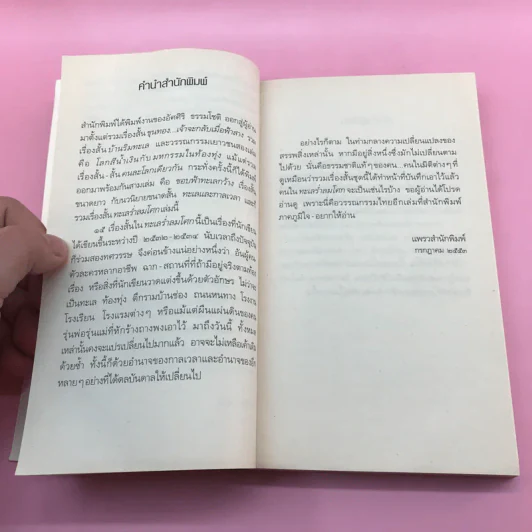 คำนำสำนักพิมพ์
สำนักพิมพ์ได้พิมพ์งานของอัศศิริ ธรรมโชติ ออกสู่ผู้อ่าน
มาตั้งแต่รวมเรื่องสั้น ขุนทอง...เจ้าจะกลับเมื่อฟ้าสาง รวม
เรื่องสั้น บ้านริมทะเล และวรรณกรรมเยาวชนสองเล่ม
คือ โลกสีน้ำเงินกับ มหกรรมในท้องทุ่ง แม้แต่รวม
เรื่องสั้น-สั้น คนละโลกเดียวกัน กระทั่งครั้งนี้ก็ได้พิมพ์
ออกมาพร้อมกันสามเล่ม คือ ขอบฟ้าทะเลกว้าง เรื่องสั้น
ขนาดยาว กับนวนิยายขนาดสั้น ทะเลและกาลเวลา และที่
รวมเรื่องสั้น ทะเลร่ำลมโศก เล่มนี้
๑๕ เรื่องสั้นใน ทะเลร่ำลมโศก นี้เป็นเรื่องที่นักเขียน
ได้เขียนขึ้นระหว่างปี ๒๕๒๒-๒๕๓๔ นับเวลาถึงปัจจุบัน
ก็ร่วมสองทศวรรษ จึงค่อนข้างแน่อย่างหนึ่งว่า อันผู้คน
ตัวละครหลากอาชีพ ฉาก-สถานที่ที่ถ้ามีอยู่จริงตามท้อง
เรื่อง หรือสิ่งที่นักเขียนวาดแต่งขึ้นด้วยตัวอักษร ไม่ว่าจะ
เป็นทะเล ท้องทุ่ง ตึกรามบ้านช่อง ถนนหนทาง โรงงาน
โรงเรียน โรงแรมต่างๆ หรือแม้แต่ผืนแผ่นดินของคน
รุ่นพ่อรุ่นแม่ที่หักร้างถางพงเอาไว้ มาถึงวันนี้ ทั้งหมด
เหล่านั้นคงจะแปรเปลี่ยนไปมากแล้ว อาจจะไม่เหลือเค้าเดิม
ด้วยซ้ำ ทั้งนี้ก็ด้วยอำนาจของกาลเวลาและอำนาจของอีก
หลายๆ อย่างที่ได้ดลบันดาลให้เปลี่ยนไป
อย่างไรก็ตาม ในท่ามกลางความเปลี่ยนแปลงของ
สรรพสิ่งเหล่านั้น หากมีอยู่สิ่งหนึ่งซึ่งมักไม่เปลี่ยนตาม
ไปด้วย นั่นคือธรรมชาติแท้ๆ ของคน...คนในมิติต่างๆ ที่
ดูเหมือนว่ารวมเรื่องสั้นชุดนี้ได้ทำหน้าที่บันทึกเอาไว้แล้ว
คนใน ทะเลร่ำลมโศก จะเป็นเช่นไรบ้าง ขอผู้อ่านได้โปรด
อ่านดู เพราะนี่คือวรรณกรรมไทยอีกเล่มที่สำนักพิมพ์
ภาคภูมิใจ-อยากให้อ่าน
แพรวสำนักพิมพ์
กรกฎาคม ๒๕๕๓